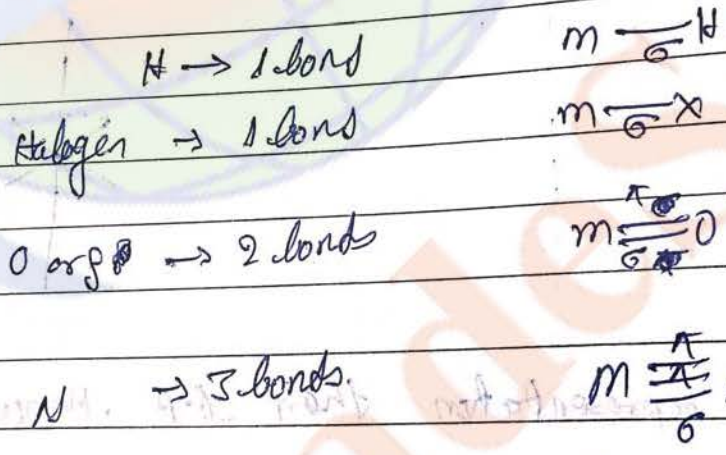 H → 1 bond m —σ— H
Halogen → 1 bond m —σ— X
O or S → 2 bonds m =(π, σ)= O
N → 3 bonds. M ≡(π, π, σ)≡